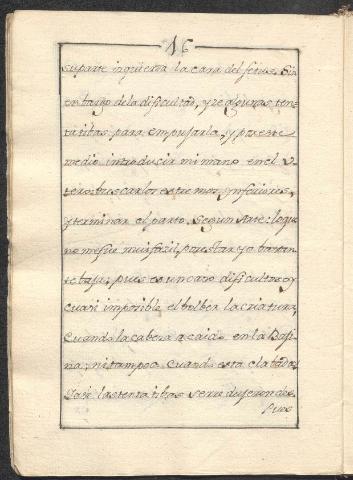 16
su parte inquierda la cara del fetus. Sin
embargo de la dificultad, y de algunas ten-
tatibas para empujarla, y por este
medio introducir mi mano en el U-
tero: buscar los estremos ynferiores,
y terminar el parto, segun state: lo que
no me fue mui facil, por estar yo bastan
te baja; pues es un caso dificultoso y
cuasi imposible el bolber la criatura,
Cuando la cabeza a caido en la Bagi-
na, ni tampoco cuando esta clabada:
las tentatibas se me